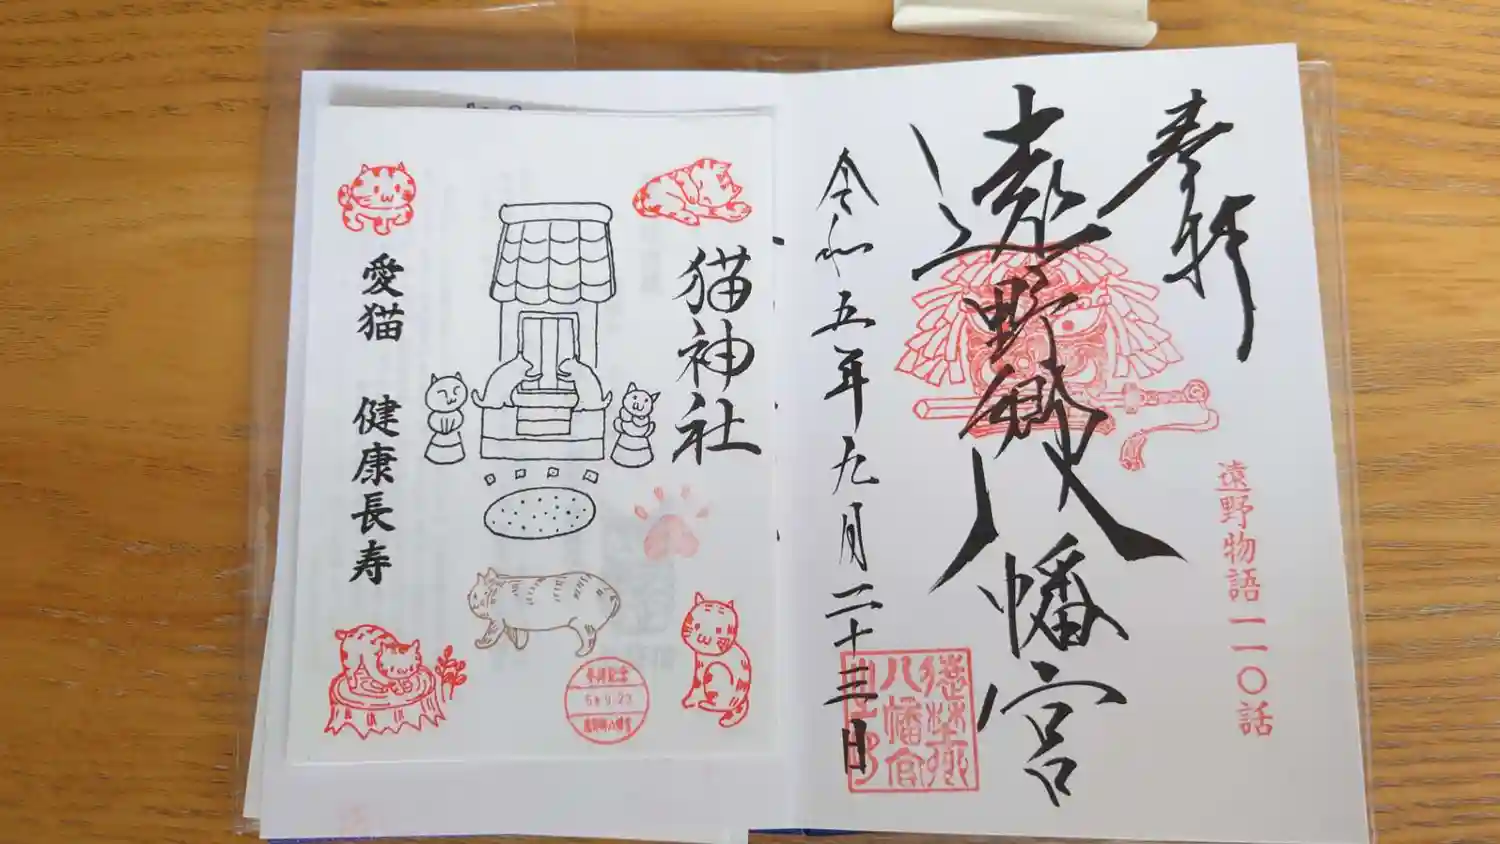 奉拝
遠野郷八幡宮
令和五年九月二十三日
遠野物語一一〇話
猫神社
愛猫 健康長寿
参拝記念
5.9.23
遠野郷八幡宮